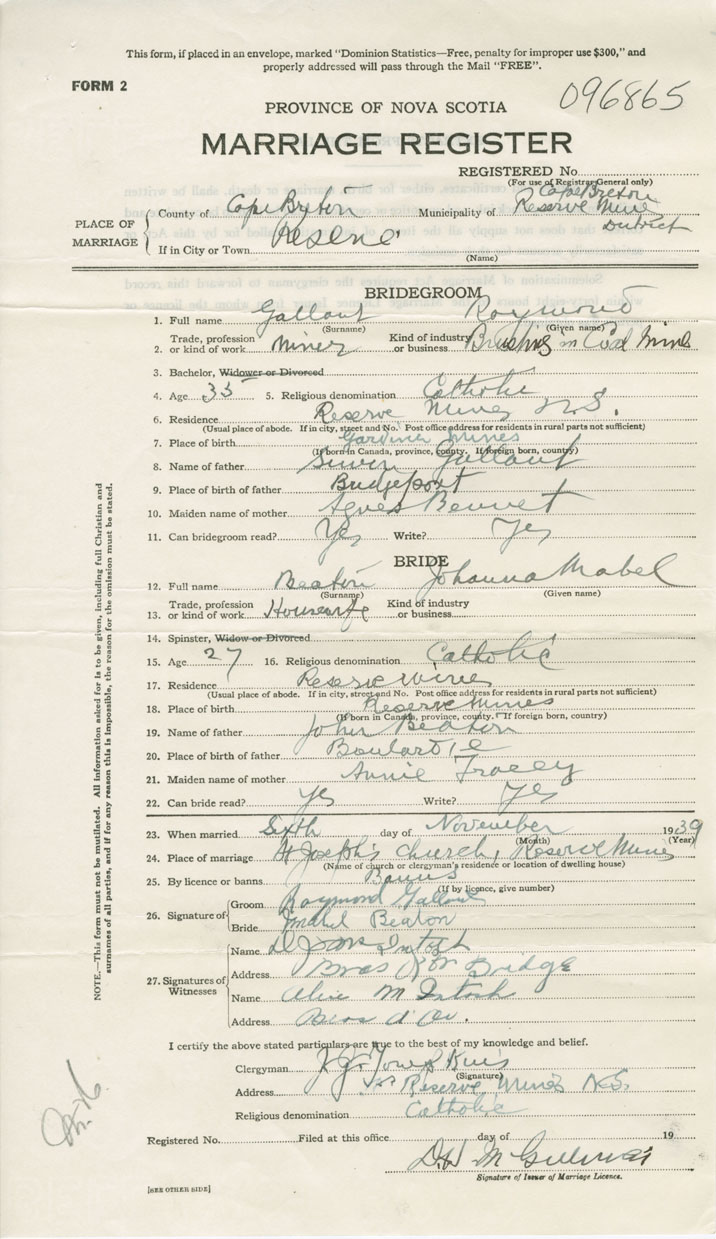 This form, if placed in an envelope, marked "Dominion Statistics—Free, penalty for improper use $300," and
properly addressed will pass through the Mail "FREE".
FORM 2
096865
PROVINCE OF NOVA SCOTIA
MARRIAGE REGISTER
REGISTERED No.
(For use of Registrar General only)
PLACE OF MARRIAGE
County of Cape Breton Municipality of Cape Breton Reserve Mine District
If in City or Town Reserve
(Name)
BRIDEGROOM
1. Full name Gallant Raymond
(Surname) (Given name)
2. Trade, profession or kind of work Miner Kind of industry or business Brushing in Coal Mine
3. Bachelor, Widower or Divorced
4. Age 35 5. Religious denomination Catholic
6. Residence Reserve Mines N.S.
(Usual place of abode. If in city, street and No. Post office address for residents in rural parts not sufficient)
7. Place of birth Gardiner Mines
(If born in Canada, province, county. If foreign born, country)
8. Name of father Gallant
9. Place of birth of father Bridgeport
10. Maiden name of mother Agnes Bennet
11. Can bridegroom read? Yes Write? Yes
BRIDE
12. Full name Beaton Johanna Mabel
(Surname) (Given name)
13. Trade, profession or kind of work Housewife Kind of industry or business
14. Spinster, Widow or Divorced
15. Age 27 16. Religious denomination Catholic
17. Residence Reserve Mines
(Usual place of abode. If in city, street and No. Post office address for residents in rural parts not sufficient)
18. Place of birth Reserve Mines
(If born in Canada, province, county. If foreign born, country)
19. Name of father John Beaton
20. Place of birth of father Boulardie
21. Maiden name of mother Annie Tracey
22. Can bride read? Yes Write? Yes
23. When married Sixth day of November 1939
(Month) (Year)
24. Place of marriage St Joseph's Church, Reserve Mines
(Name of church or clergyman's residence or location of dwelling house)
25. By licence or banns Banns
(If by licence, give number)
26. Signature of
Groom Raymond Gallant
Bride Mabel Beaton
27. Signatures of Witnesses
Name McIntosh
Address Bras d'Or Bridge
Name Alice McIntosh
Address Bras d'Or.
I certify the above stated particulars are true to the best of my knowledge and belief.
Clergyman
(Signature)
Address Reserve Mines N.S.
Religious denomination Catholic
Registered No. Filed at this office day of 19
Signature of Issuer of Marriage Licence.
[SEE OTHER SIDE]
NOTE.—This form must not be mutilated. All information asked for is to be given, including full Christian and
surnames of all parties, and if for any reason this is impossible, the reason for the omission must be stated.